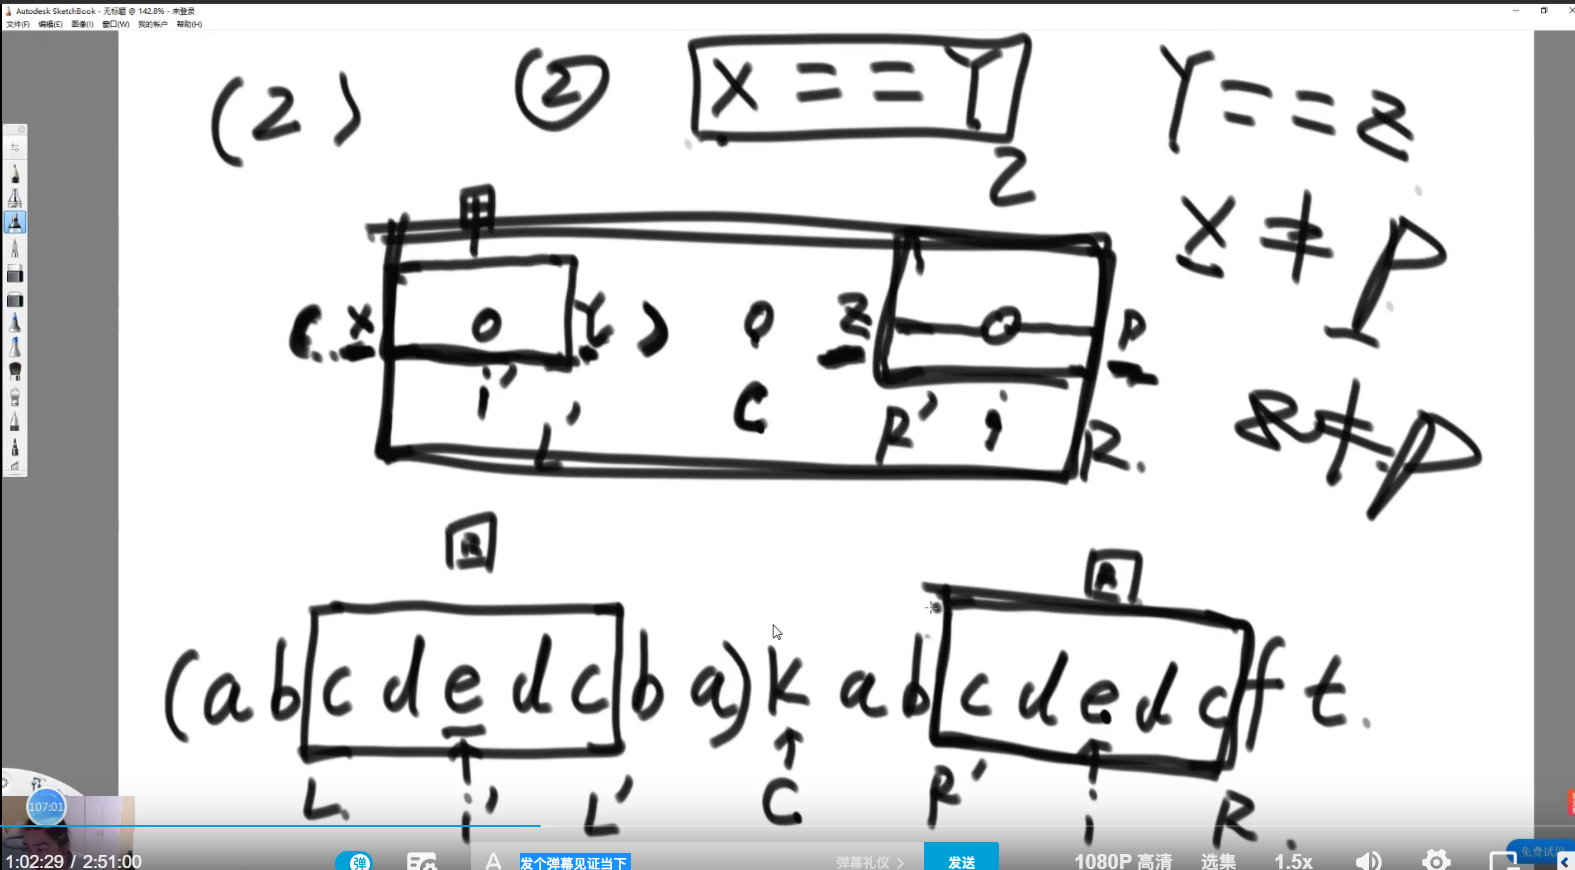 Autodesk SketchBook - 无标题 @ 142.8% - 未登录
文件(F) 编辑(E) 图像(I) 窗口(W) 我的帐户 帮助(H)
(2) ② X == Y Y == Z
Z
X ≠ P
(.. X O Y ) O Z O P
i' C R' i
L' R.
Z ≠ P
(a b c d e d c b a) k a b c d e d c f t.
L. i' L' C R' i R.
107:01
1:02:29 / 2:51:00 弹 A 发个弹幕见证当下 弹幕礼仪 > 发送 1080P 高清 选集 1.5x
免费试用